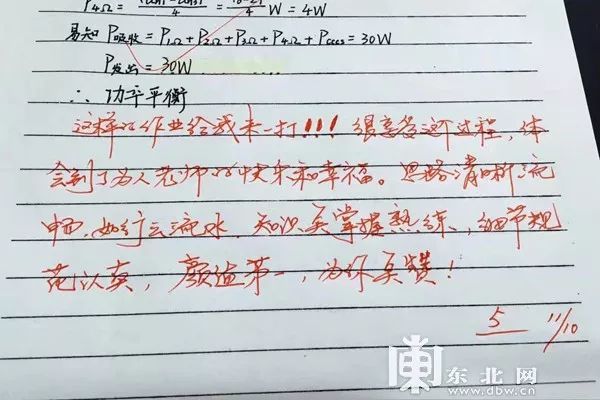 P4Ω = = W = 4W
易知 P吸收 = P1Ω + P2Ω + P3Ω + P4Ω + Pcccs = 30W
P发出 = 30W
∴ 功率平衡
这样的作业给我来一打!!! 很享受这个过程,体
会到了为人老师的快乐和幸福。思路清晰流
畅,如行云流水,知识点掌握熟练,细节规
范认真,颜值第一,为你点赞!
5 11/10
東北网
www.dbw.cn